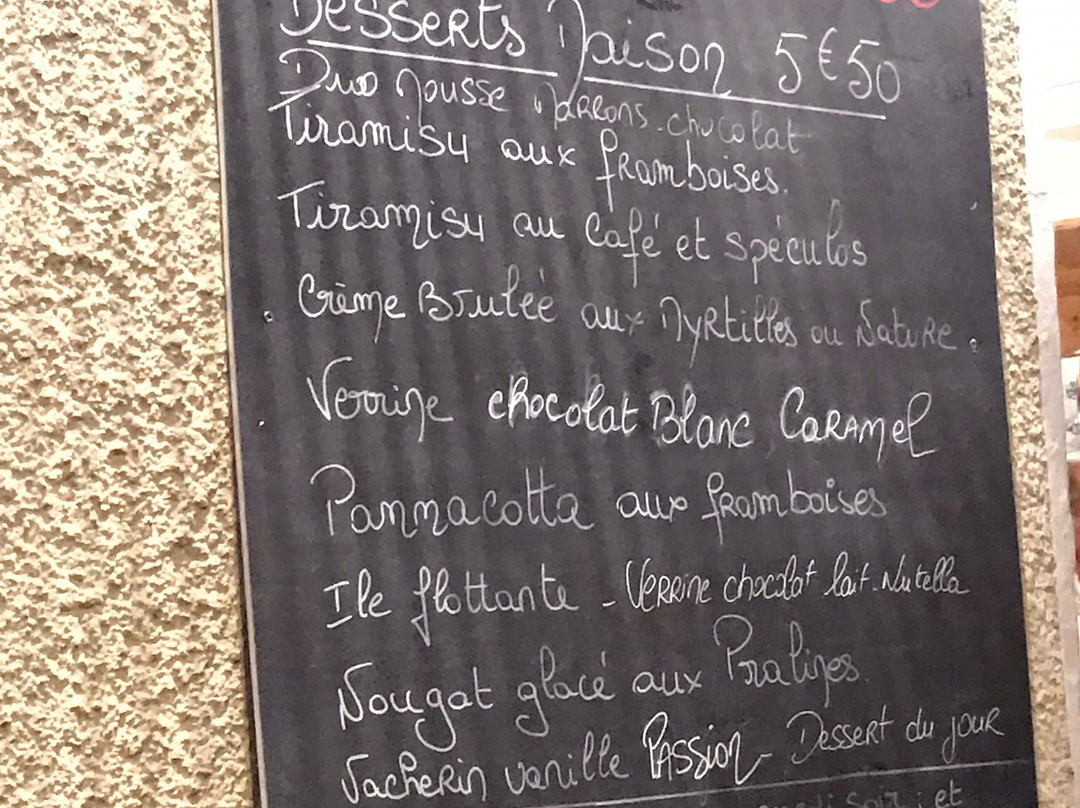 Desserts Maison 5€50
Duo Mousse Marrons-chocolat
Tiramisu aux framboises.
Tiramisu au Café et spéculos
. Crème Brulée aux Myrtilles ou Nature.
. Verrine chocolat Blanc Caramel
Pannacotta aux framboises
Ile flottante - Verrine chocolat lait-Nutella
Nougat glacé aux Pralines.
Vacherin vanille Passion - Dessert du jour
soir et